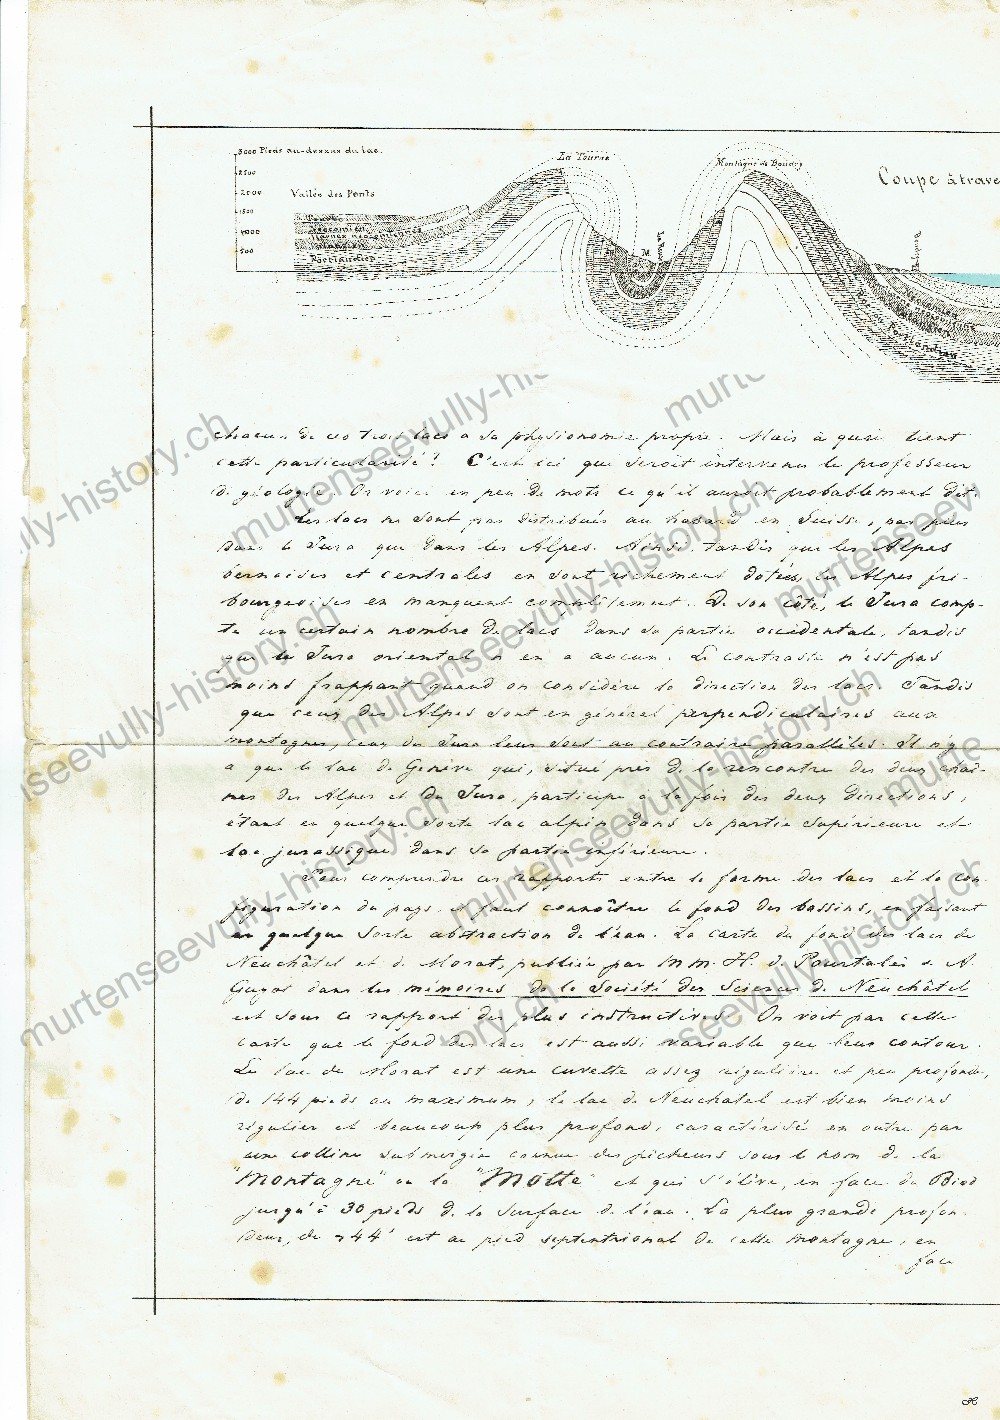 3000 Pieds au-dessus du lac.
2500
2000
1500
1000
500
Vallée des Ponts
Portlandien
La Tourne
M.
Montagne de Boudry
Coupe à trave
Portlandien
chacun de ces trois lacs a sa physionomie propre. Mais à quoi tient
cette particularité? C'est ici qui seroit intervenu le professeur
de géologie. Or voici en peu de mots ce qu'il auroit probablement dit.
Les lacs ne sont pas distribués au hasard en Suisse, pas plus
dans le Jura que dans les Alpes. Ainsi, tandis que les Alpes
bernoises et centrales en sont richement dotées, les Alpes fri-
bourgeoises en manquent complètement. De son côté, le Jura comp-
te un certain nombre de lacs dans sa partie occidentale, tandis
que le Jura oriental n'en a aucun. Le contraste n'est pas
moins frappant quand on considère la direction des lacs. Tandis
que ceux des Alpes sont en général perpendiculaires aux
montagnes, ceux du Jura leur sont au contraire parallèles. Il n'y
a que le lac de Genève qui, situé près de la rencontre des deux chaî-
nes des Alpes et du Jura, participe à la fois des deux directions,
étant en quelque sorte lac alpin dans sa partie supérieure et
lac jurassique dans sa partie inférieure.
Pour comprendre ces rapports entre la forme des lacs et la con-
figuration du pays, il faut connoître le fond des bassins, en faisant
en quelque sorte abstraction de l'eau. La carte du fond des lacs de
Neuchâtel et de Morat, publiée par MM. H. de Pourtalès & A.
Guyot dans les mémoires de la Société des Sciences de Neuchâtel
est sous ce rapport des plus instructives. On voit par cette
carte que le fond des lacs est aussi variable que leur contour.
Le lac de Morat est une cuvette assez régulière et peu profonde,
de 144 pieds au maximum; le lac de Neuchatel est bien moins
régulier et beaucoup plus profond, caractérisé en outre par
une colline submergée connue des pêcheurs sous le nom de la
"Montagne" ou la "Motte" et qui s'élève, en face du Bied
jusqu'à 30 pieds de la surface de l'eau. La plus grande profon-
deur, de 444' est au pied septentrional de cette montagne, en
face
murtenseevully-history.ch